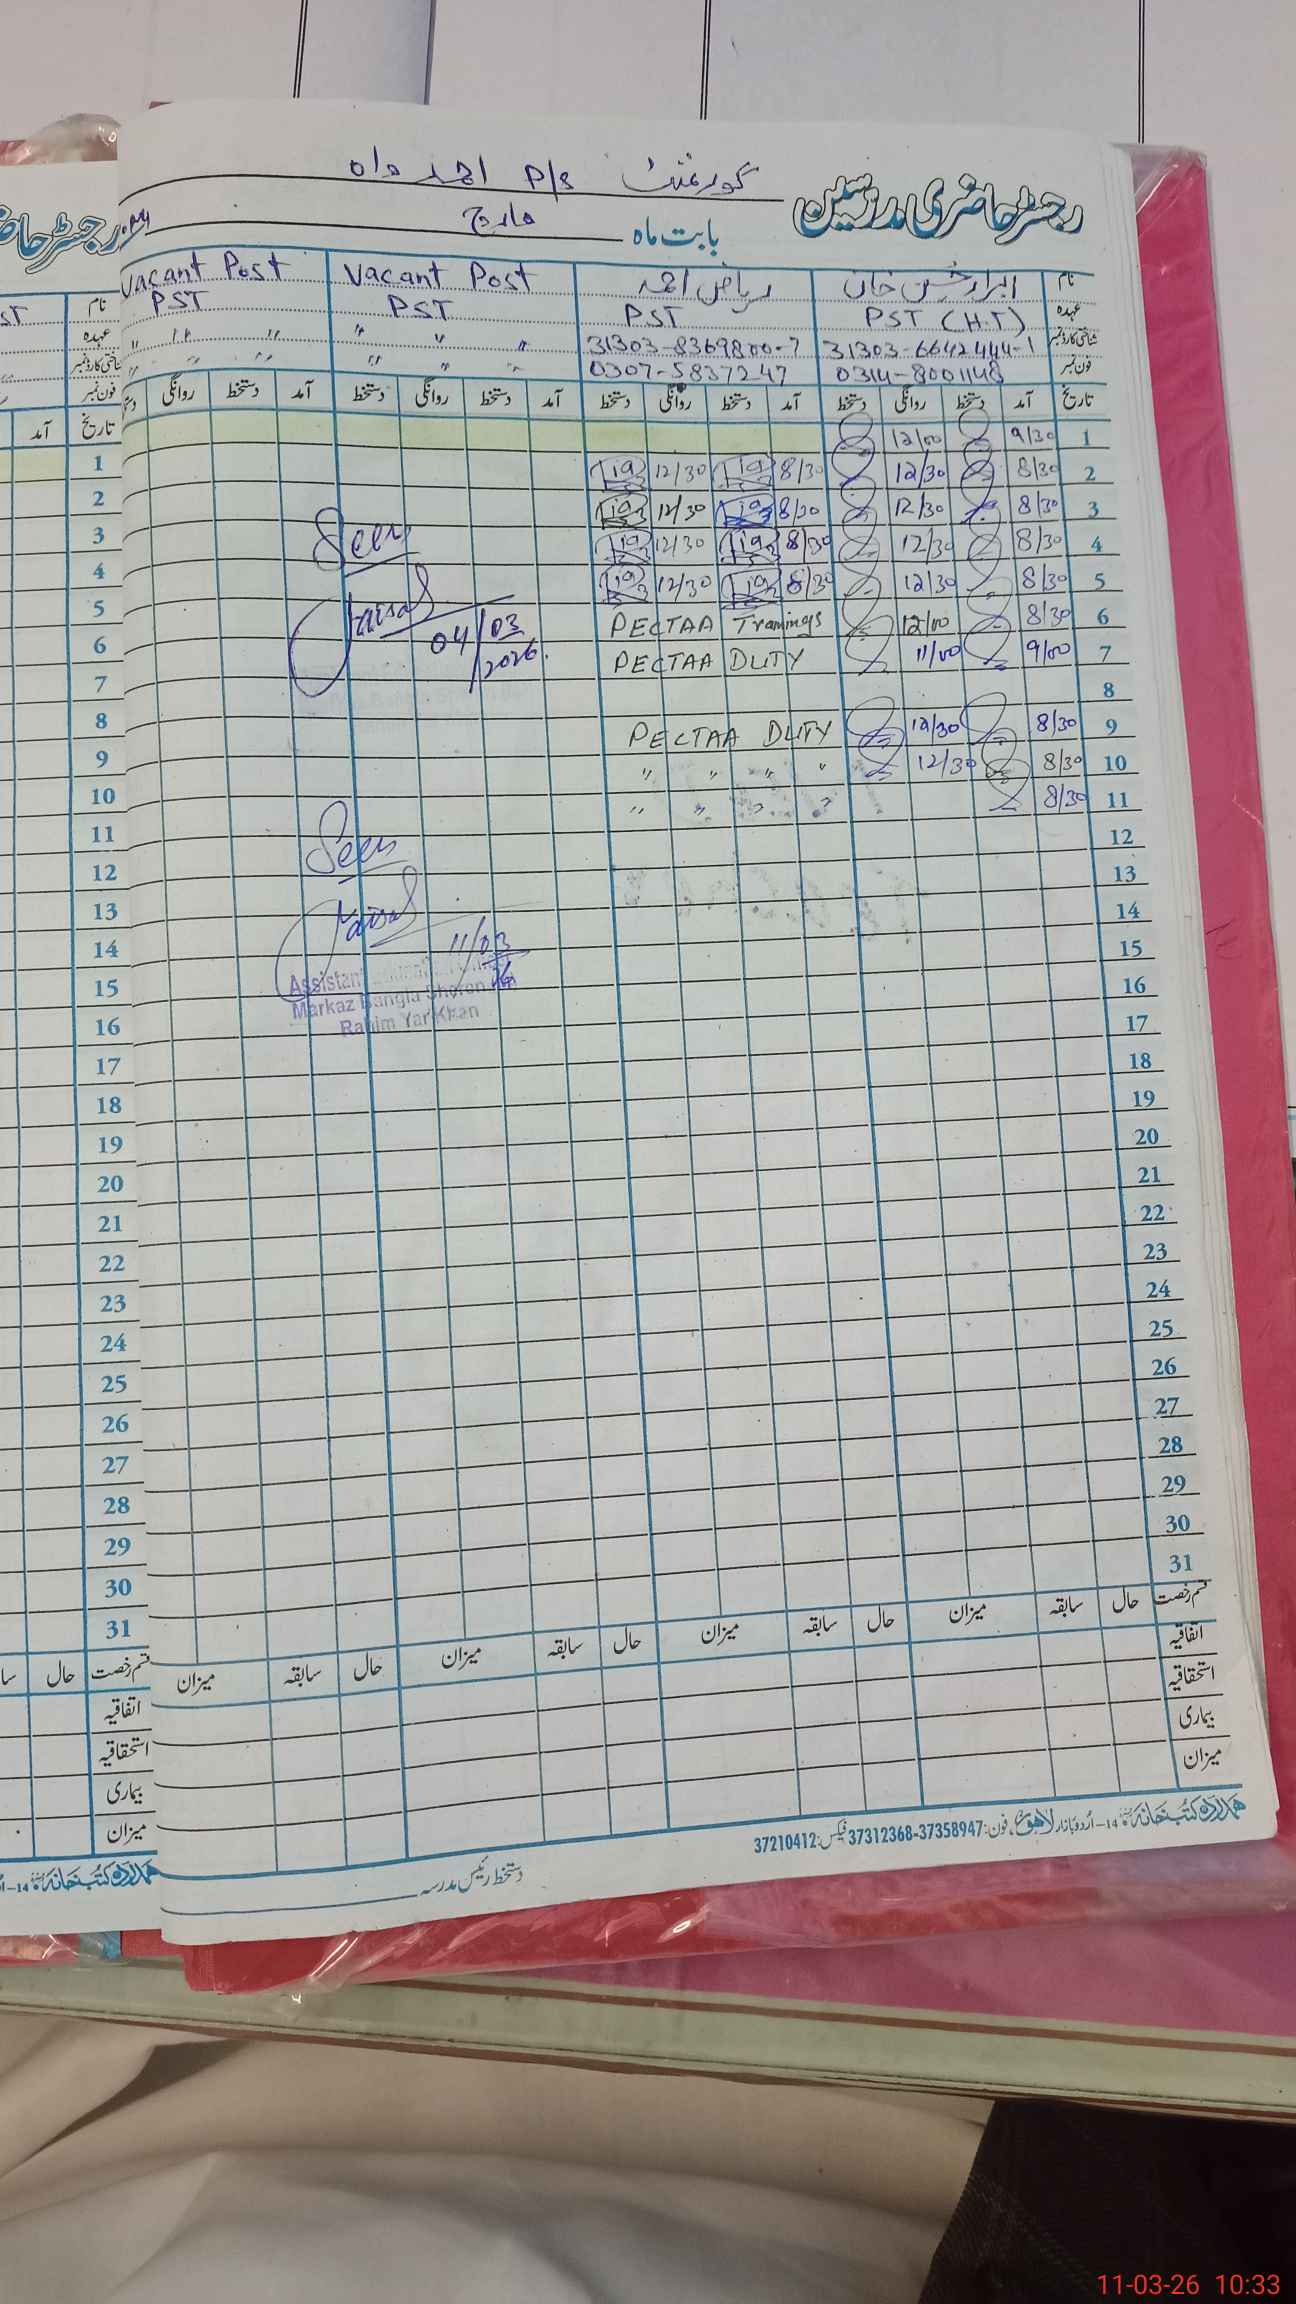 گورنمنٹ P/S احمد واہ
رجسٹر حاضری مدرسین
بابت ماہ مارچ
نام ابرار حسن خان ریاض احمد Vacant Post Vacant Post
عہدہ PST (H.T) PST PST PST
شناختی کارڈ نمبر 31303-6642444-1 31303-8369800-7 " " " " " "
فون نمبر 0314-8001148 0307-5837247 " " " " " "
تاریخ آمد دستخط روانگی دستخط آمد دستخط روانگی دستخط آمد دستخط روانگی دستخط آمد دستخط روانگی
1 9/30 12/00
2 8/30 12/30 8/30 12/30
3 8/30 12/30 8/30 12/30
4 8/30 12/30 8/30 12/30
5 8/30 12/30 8/30 12/30
6 8/30 12/00 PECTAA Trainings
7 9/00 11/00 PECTAA DUTY
8
9 8/30 12/30 PECTAA DUTY
10 8/30 12/30 " " " "
11 8/30 " " " "
12
13
14
15
16
17
18
19
20
21
22
23
24
25
26
27
28
29
30
31
Seen
04/03/2026.
Seen
11/03
Assistant
Markaz Bangla
Rahim Yar Khan
قسم رخصت حال سابقہ میزان حال سابقہ میزان حال سابقہ میزان حال سابقہ میزان
اتفاقیہ
استحقاقیہ
بیماری
میزان
ہمدرد کتب خانہ 14-اردو بازار لاہور، فون: 37312368-37358947 فیکس: 37210412
دستخط رئیس مدرسہ
رجسٹر حاضری
نام
عہدہ
شناختی کارڈ نمبر
فون نمبر
تاریخ آمد
1
2
3
4
5
6
7
8
9
10
11
12
13
14
15
16
17
18
19
20
21
22
23
24
25
26
27
28
29
30
31
قسم رخصت حال
اتفاقیہ
استحقاقیہ
بیماری
میزان
ہمدرد کتب خانہ
11-03-26 10:33